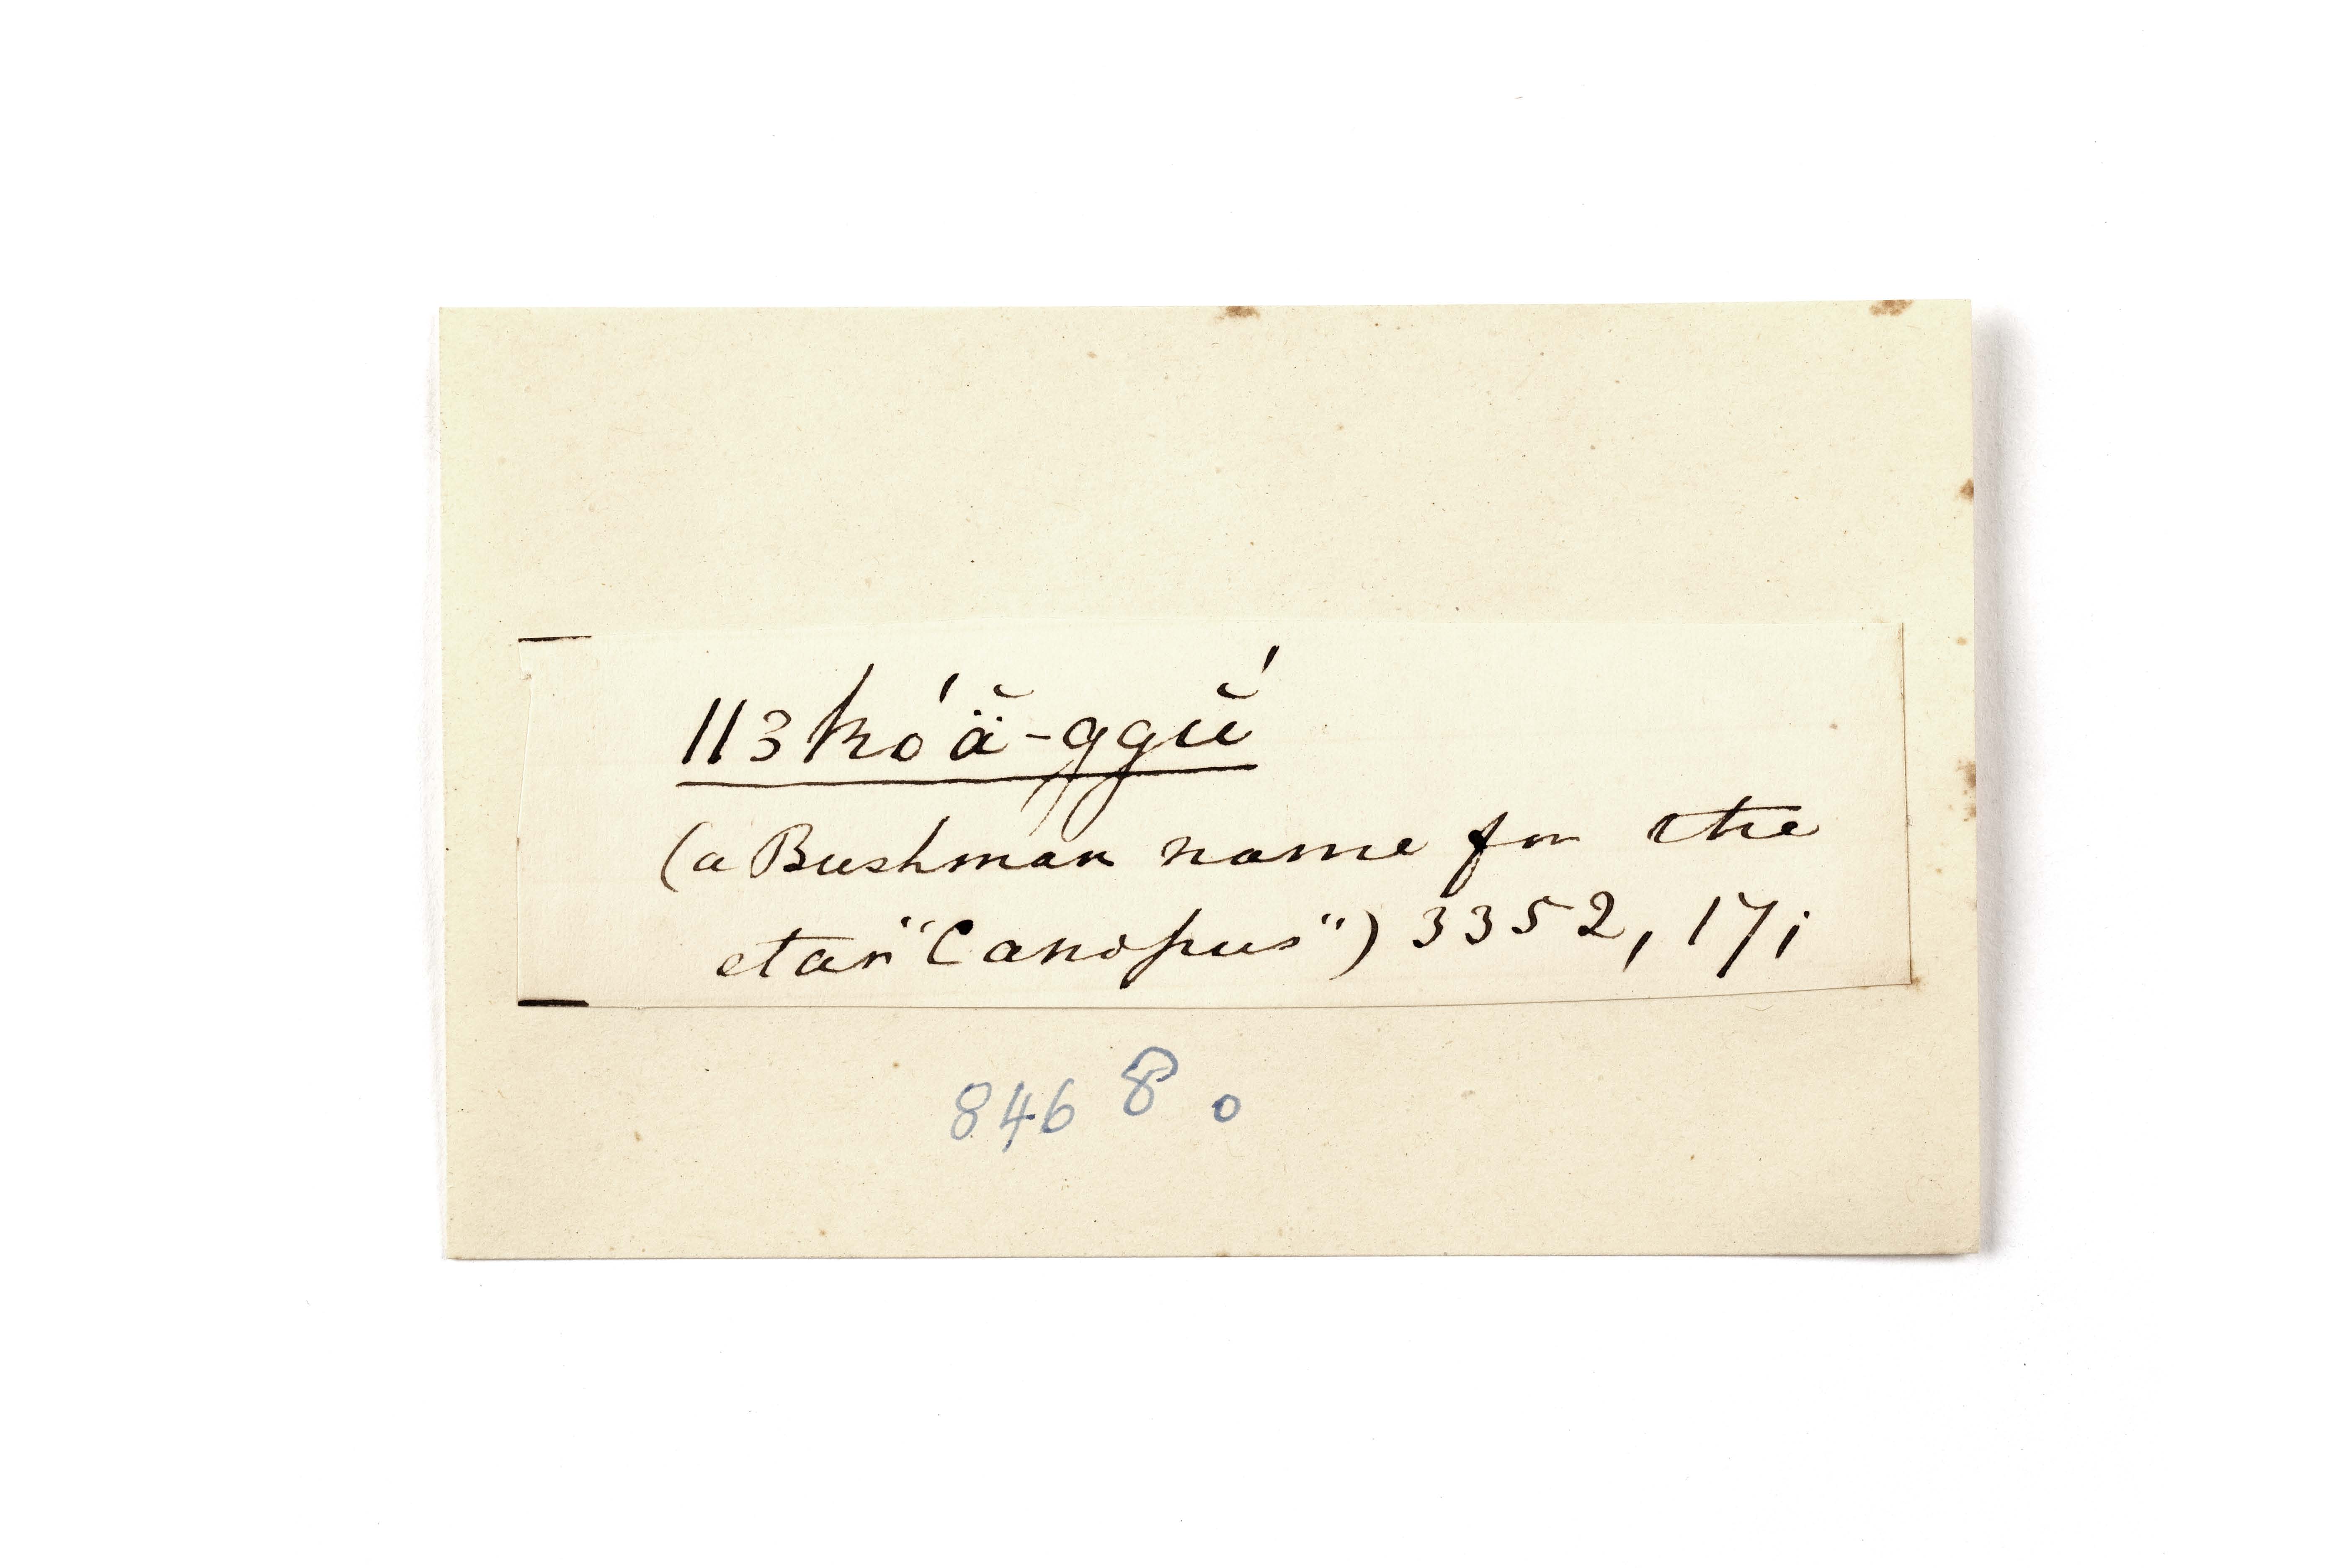 ǁ3kóä̆-ggŭ́
(a Bushman name for the
star "Canopus") 3352, 17;
846 8 0